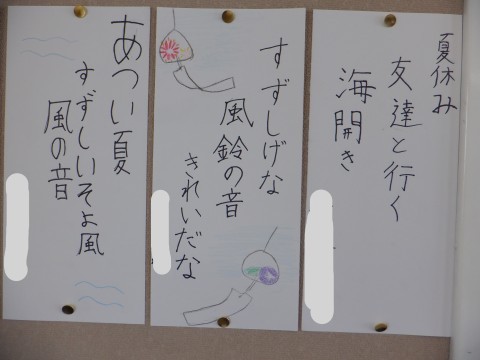 夏休み
友達と行く
海開き
すずしげな
風鈴の音
きれいだな
あつい夏
すずしいそよ風
風の音